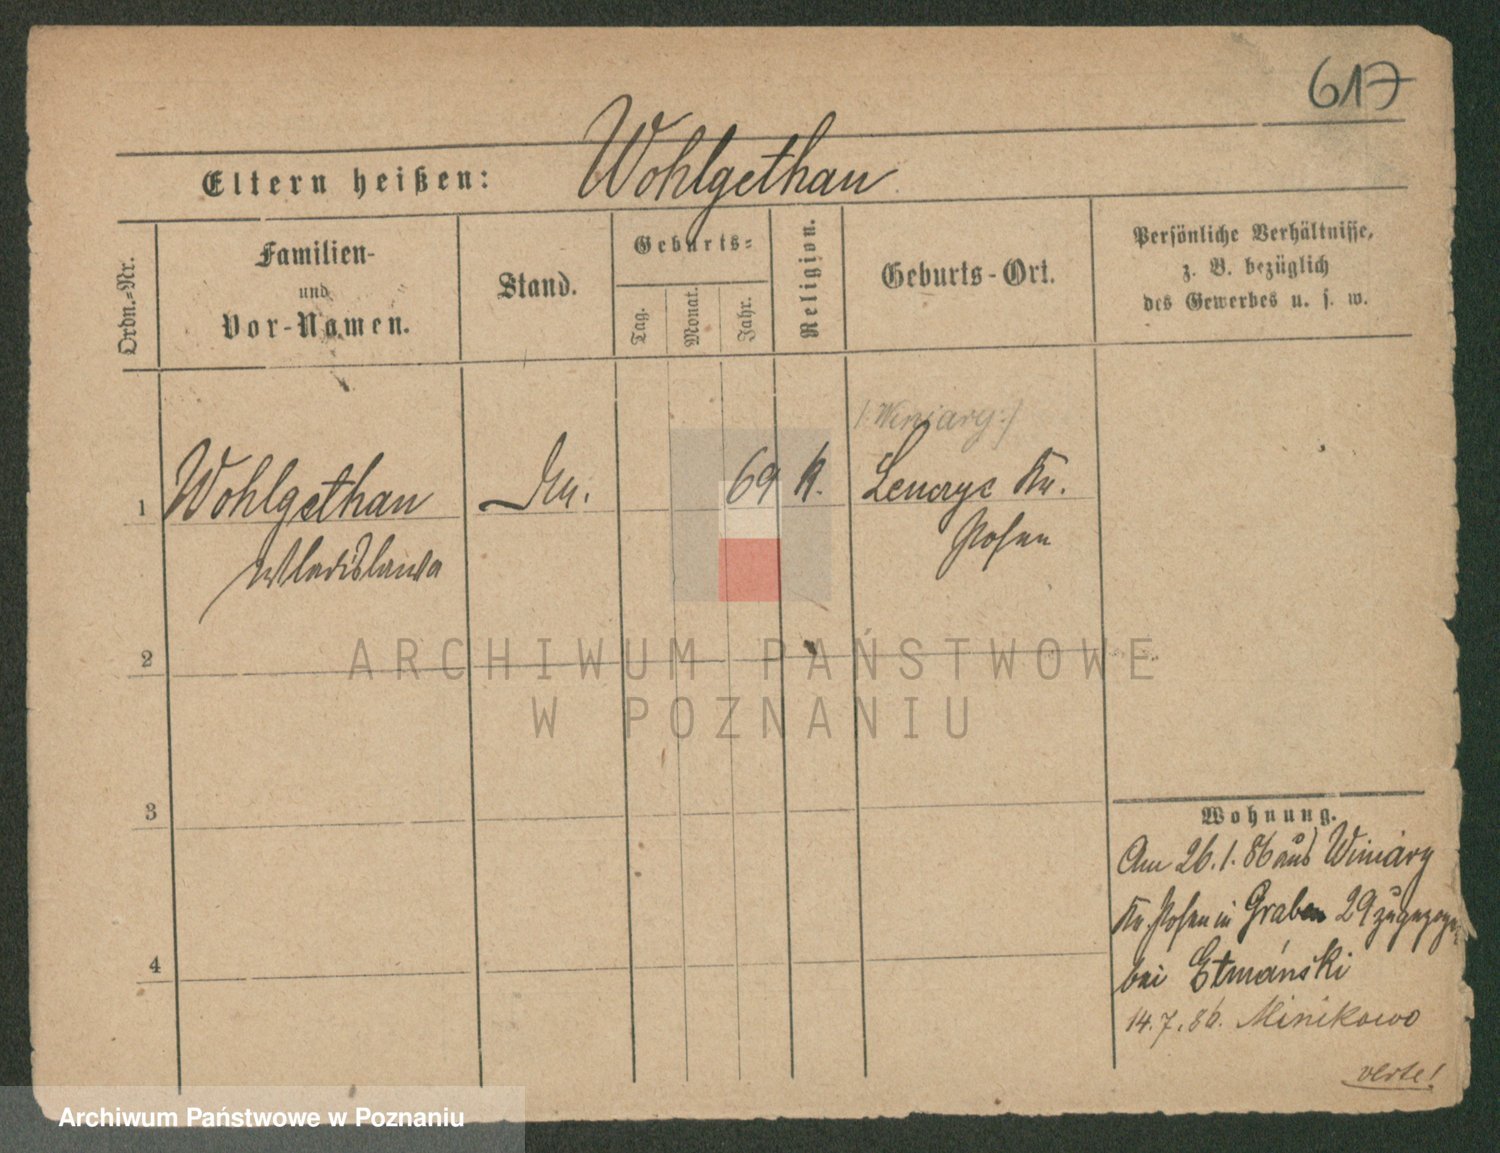 617
Eltern heißen: Wohlgethan
Ordn.-Nr.
Familien-
und
Vor-Namen.
Stand.
Geburts-
Tag.
Monat.
Jahr.
Religion.
Geburts-Ort.
Persönliche Verhältnisse,
z. B. bezüglich
des Gewerbes u. s. w.
/: Winiary :/
1 Wohlgethan 69 k. Kr.
Wladislawa Posen
2
ARCHIWUM PAŃSTWOWE
W POZNANIU
3
4
Wohnung.
Am 26.1.86 aus Winiary
Kr. Posen in Graben 29 zugezogen
bei Etmański
14.7.86. Minikowo
verte!
Archiwum Państwowe w Poznaniu